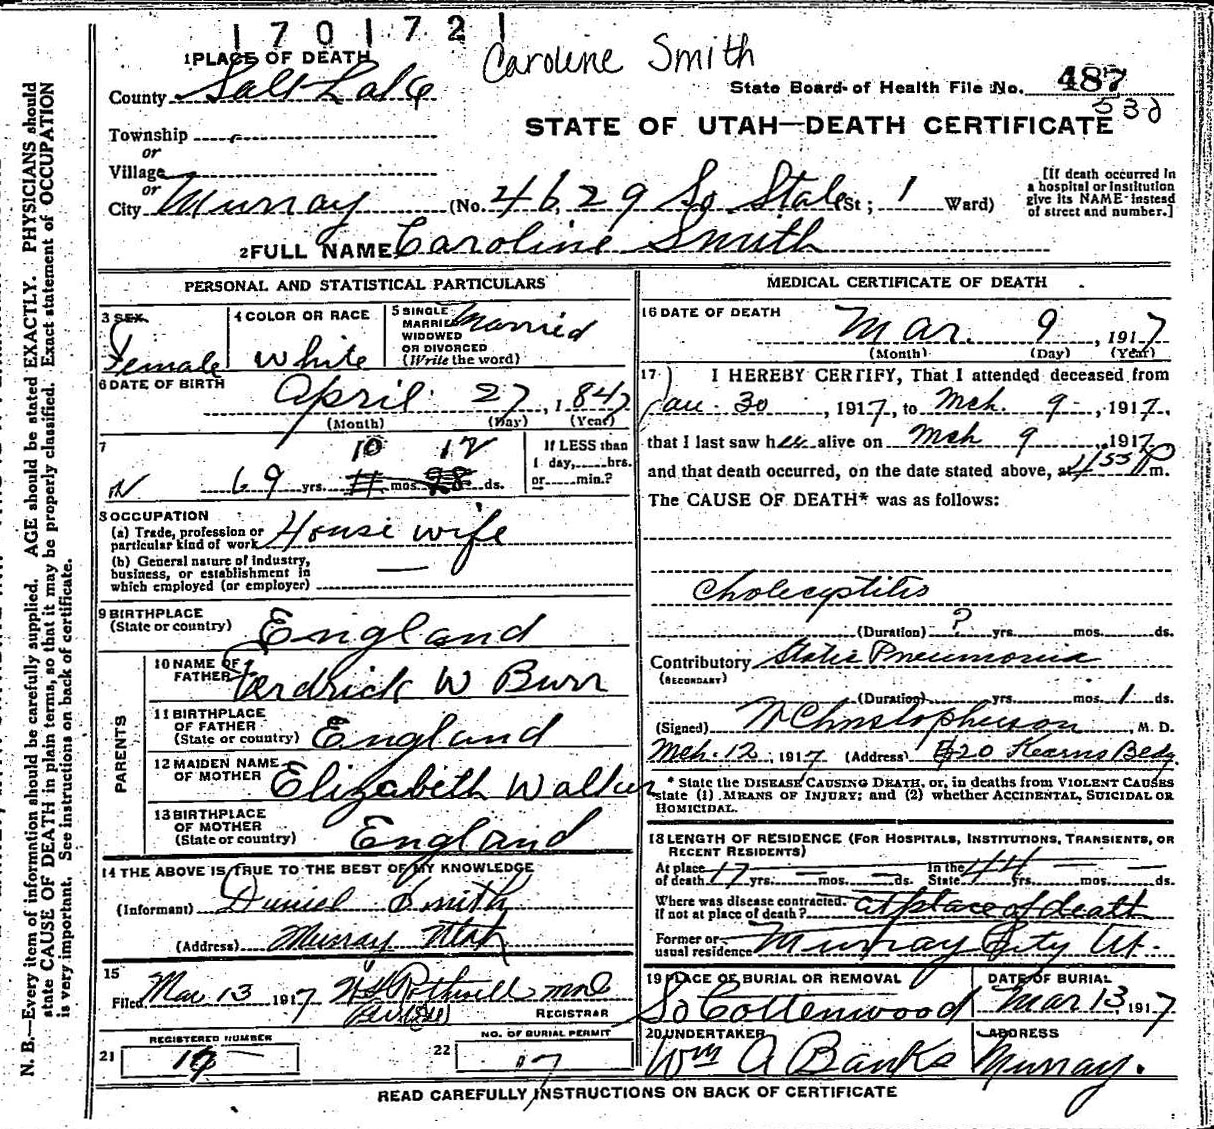 1 7 0 1 7 2 1
Caroline Smith
1 PLACE OF DEATH
County Salt Lake
State Board of Health File No. 487
530
STATE OF UTAH—DEATH CERTIFICATE
Township
or
Village
or
City Murray (No. 4629 So State St; 1 Ward)
[If death occurred in a hospital or institution give its NAME instead of street and number.]
2 FULL NAME Caroline Smith
PERSONAL AND STATISTICAL PARTICULARS
3 SEX
Female
4 COLOR OR RACE
White
5 SINGLE MARRIED WIDOWED OR DIVORCED (Write the word)
Married
6 DATE OF BIRTH
April 27, 1847
(Month) (Day) (Year)
7
10 12
69 yrs. mos. ds.
If LESS than 1 day, hrs. or min.?
8 OCCUPATION
(a) Trade, profession or particular kind of work House wife
(b) General nature of industry, business, or establishment in which employed (or employer) —
9 BIRTHPLACE (State or country) England
PARENTS
10 NAME OF FATHER Ferdrick W Burr
11 BIRTHPLACE OF FATHER (State or country) England
12 MAIDEN NAME OF MOTHER Elizabeth Walker
13 BIRTHPLACE OF MOTHER (State or country) England
14 THE ABOVE IS TRUE TO THE BEST OF MY KNOWLEDGE
(Informant) Daniel Smith
(Address) Murray Utah
15
Filed Mar 13 1917
REGISTRAR
REGISTERED NUMBER
21
NO. OF BURIAL PERMIT
22
MEDICAL CERTIFICATE OF DEATH
16 DATE OF DEATH
Mar. 9, 1917
(Month) (Day) (Year)
17 I HEREBY CERTIFY, That I attended deceased from
Jan. 30, 1917, to Mch. 9, 1917,
that I last saw her alive on Mch 9, 1917
and that death occurred, on the date stated above, at 455 P m.
The CAUSE OF DEATH* was as follows:
Cholecystitis
(Duration) ? yrs. mos. ds.
Contributory Static Pneumonia
(SECONDARY)
(Duration) yrs. mos. 1 ds.
(Signed) Christopherson, M. D.
Mch. 12, 1917 (Address) 520 Kearns Bldg.
* State the DISEASE CAUSING DEATH, or, in deaths from VIOLENT CAUSES
state (1) MEANS OF INJURY; and (2) whether ACCIDENTAL, SUICIDAL OR
HOMICIDAL.
18 LENGTH OF RESIDENCE (FOR HOSPITALS, INSTITUTIONS, TRANSIENTS, OR
RECENT RESIDENTS)
At place of death 17 yrs. — mos. — ds. In the State 44 yrs. — mos. — ds.
Where was disease contracted, if not at place of death? at place of death
Former or usual residence Murray City Ut.
19 PLACE OF BURIAL OR REMOVAL
So Cottenwood
DATE OF BURIAL
Mar 13, 1917
20 UNDERTAKER
Wm A Banks
ADDRESS
Murray.
READ CAREFULLY INSTRUCTIONS ON BACK OF CERTIFICATE
N. B.—Every item of information should be carefully supplied. AGE should be stated EXACTLY. PHYSICIANS should
state CAUSE OF DEATH in plain terms, so that it may be properly classified. Exact statement of OCCUPATION
is very important. See instructions on back of certificate.